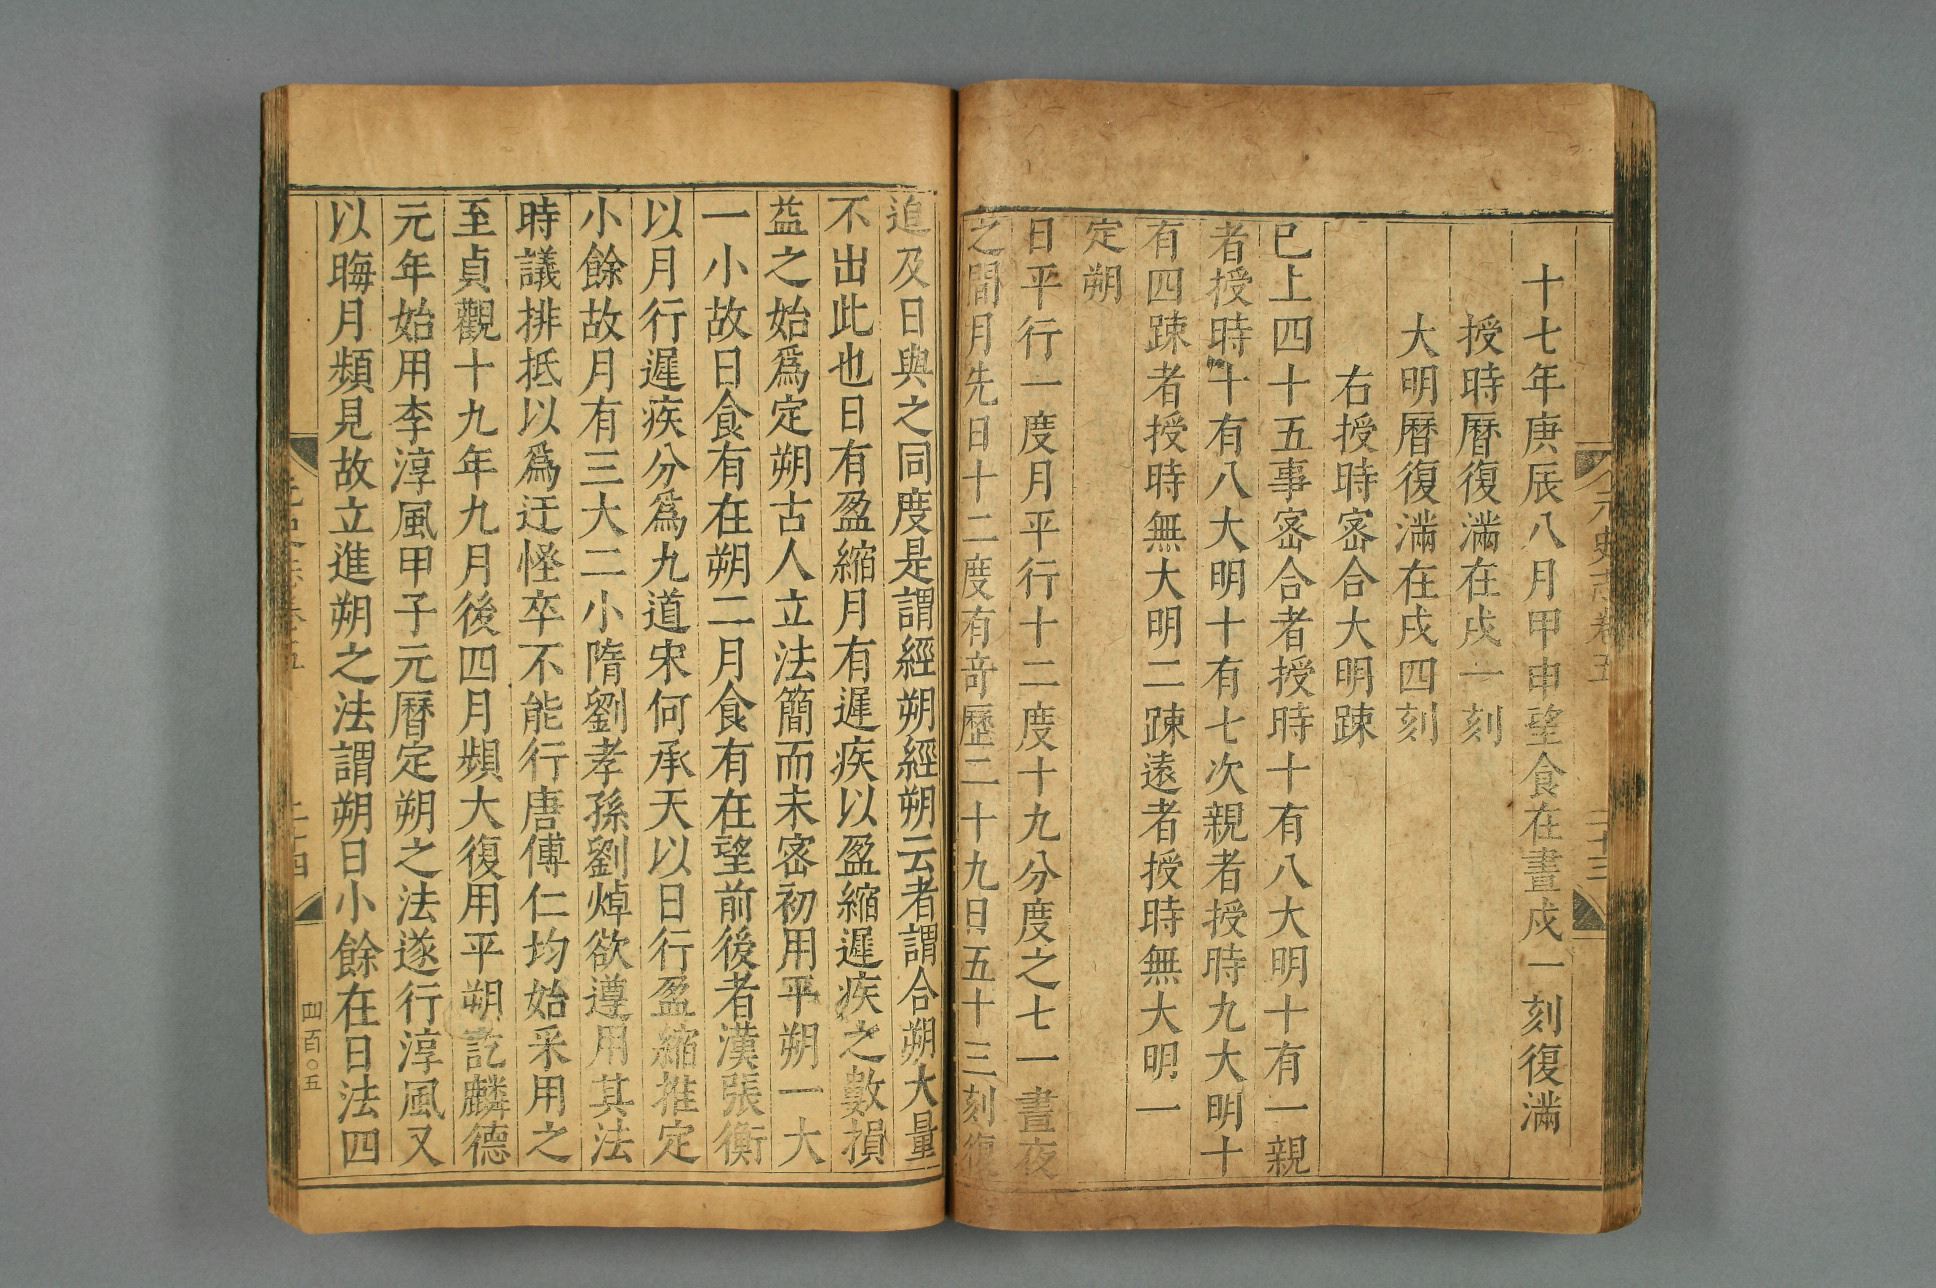 十七年庚辰八月甲申望食在晝戍一刻復滿
授時曆復滿在戍一刻
大明曆復滿在戍四刻
右授時宻合大明踈
已上四十五事宻合者授時十有八大明十有一親
者授時十有八大明十有七次親者授時九大明十
有四踈者授時無大明二踈遠者授時無大明一
定朔
日平行一度月平行十二度十九分度之七一晝夜
之間月先日十二度有竒歷二十九日五十三刻復
追及日與之同度是謂經朔經朔云者謂合朔大量
不出此也日有盈縮月有遲疾以盈縮遲疾之數損
益之始爲定朔古人立法簡而未宻初用平朔一大
一小故日食有在朔二月食有在望前後者漢張衡
以月行遲疾分爲九道宋何承天以日行盈縮推定
小餘故月有三大二小隋劉孝孫劉焯欲遵用其法
時議排抵以爲迂怪卒不能行唐傅仁均始采用之
至貞觀十九年九月後四月頻大復用平朔訖麟德
元年始用李淳風甲子元曆定朔之法遂行淳風又
以晦月頻見故立進朔之法謂朔日小餘在日法四
元史志卷五
二十三
二十四
四百〇五